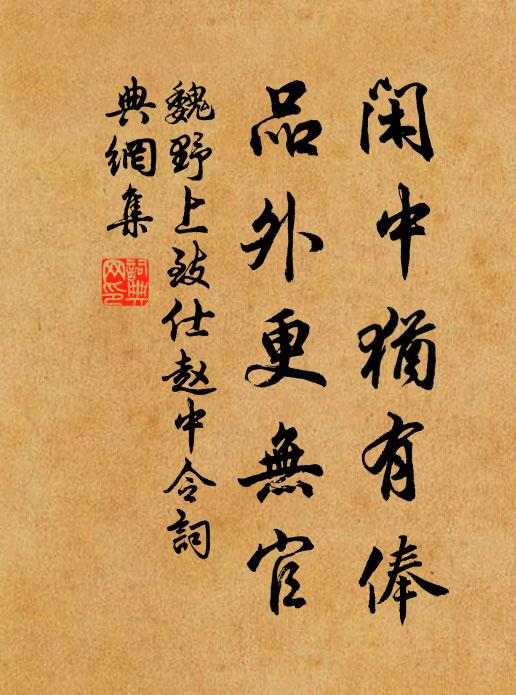 閑中猶有俸
品外更無官
魏野上致仕赵中令詞
典網集
詞典
网印